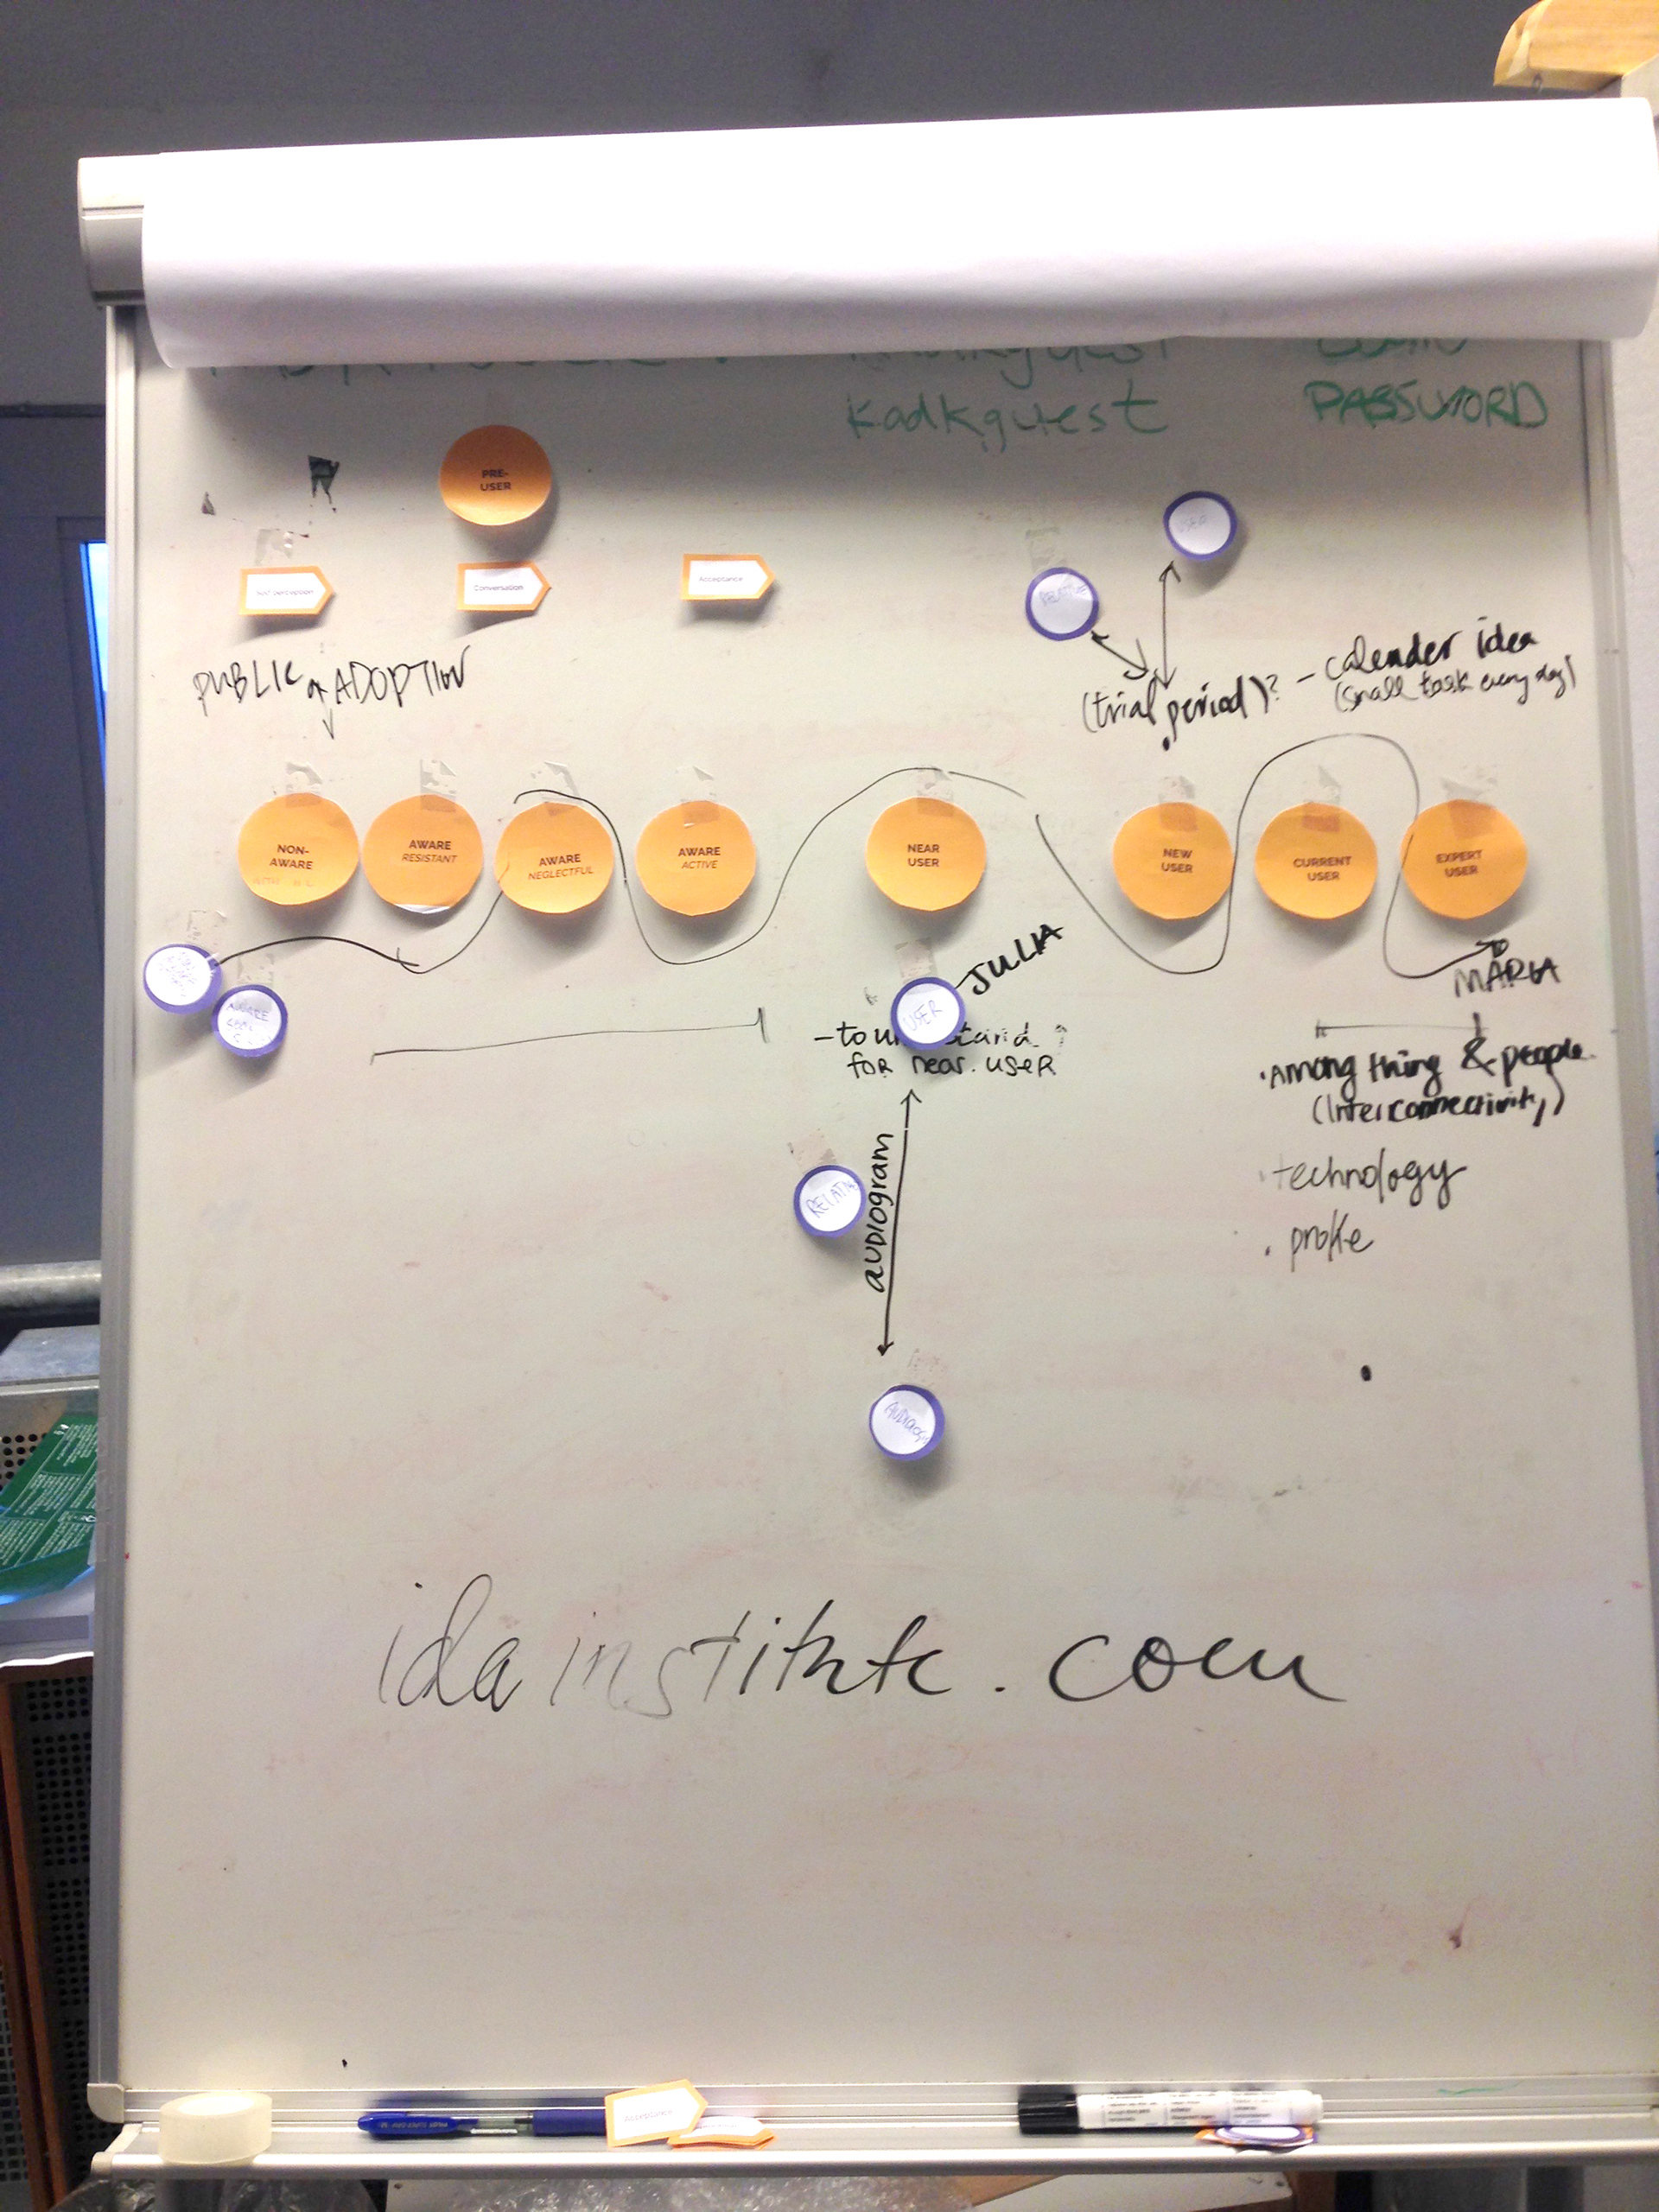 kadkguest PASSWORD
PRE-
USER
USER
Self perception
Conversation
Acceptance
RELATIVE
PUBLIC ADOPTION
(trial period)? - calender idea
(small task every day)
NON-
AWARE
AWARE
RESISTANT
AWARE
NEGLECTFUL
AWARE
ACTIVE
NEAR
USER
NEW
USER
CURRENT
USER
EXPERT
USER
JULIA
MARIA
AWARE
USER
- to
FOR near. USER
. Among thing & people.
(Interconnectivity)
technology
. probe
RELATIVE
AUDIOGRAM
AUDIOLOGI
idainstitute.com
Acceptance